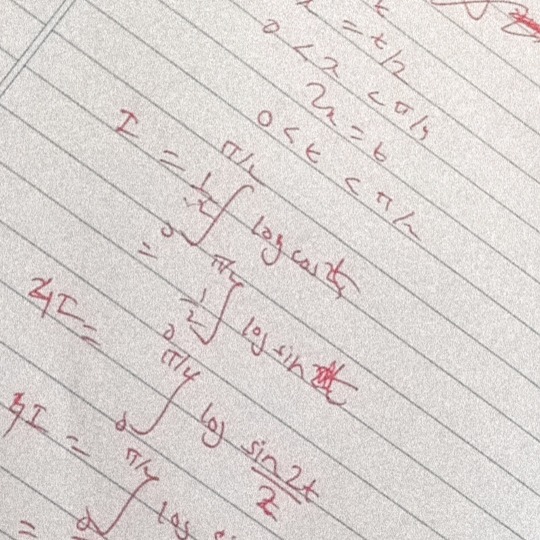 = t/2
0 < x < π/4
2x = t
0 < t < π/2
I = 1/2 ∫₀^{π/2} log cos t
= 1/2 ∫₀^{π/2} log sin
4I = ∫₀^{π/4} log sin2t/2
4I = ∫₀^{π/4} log
=